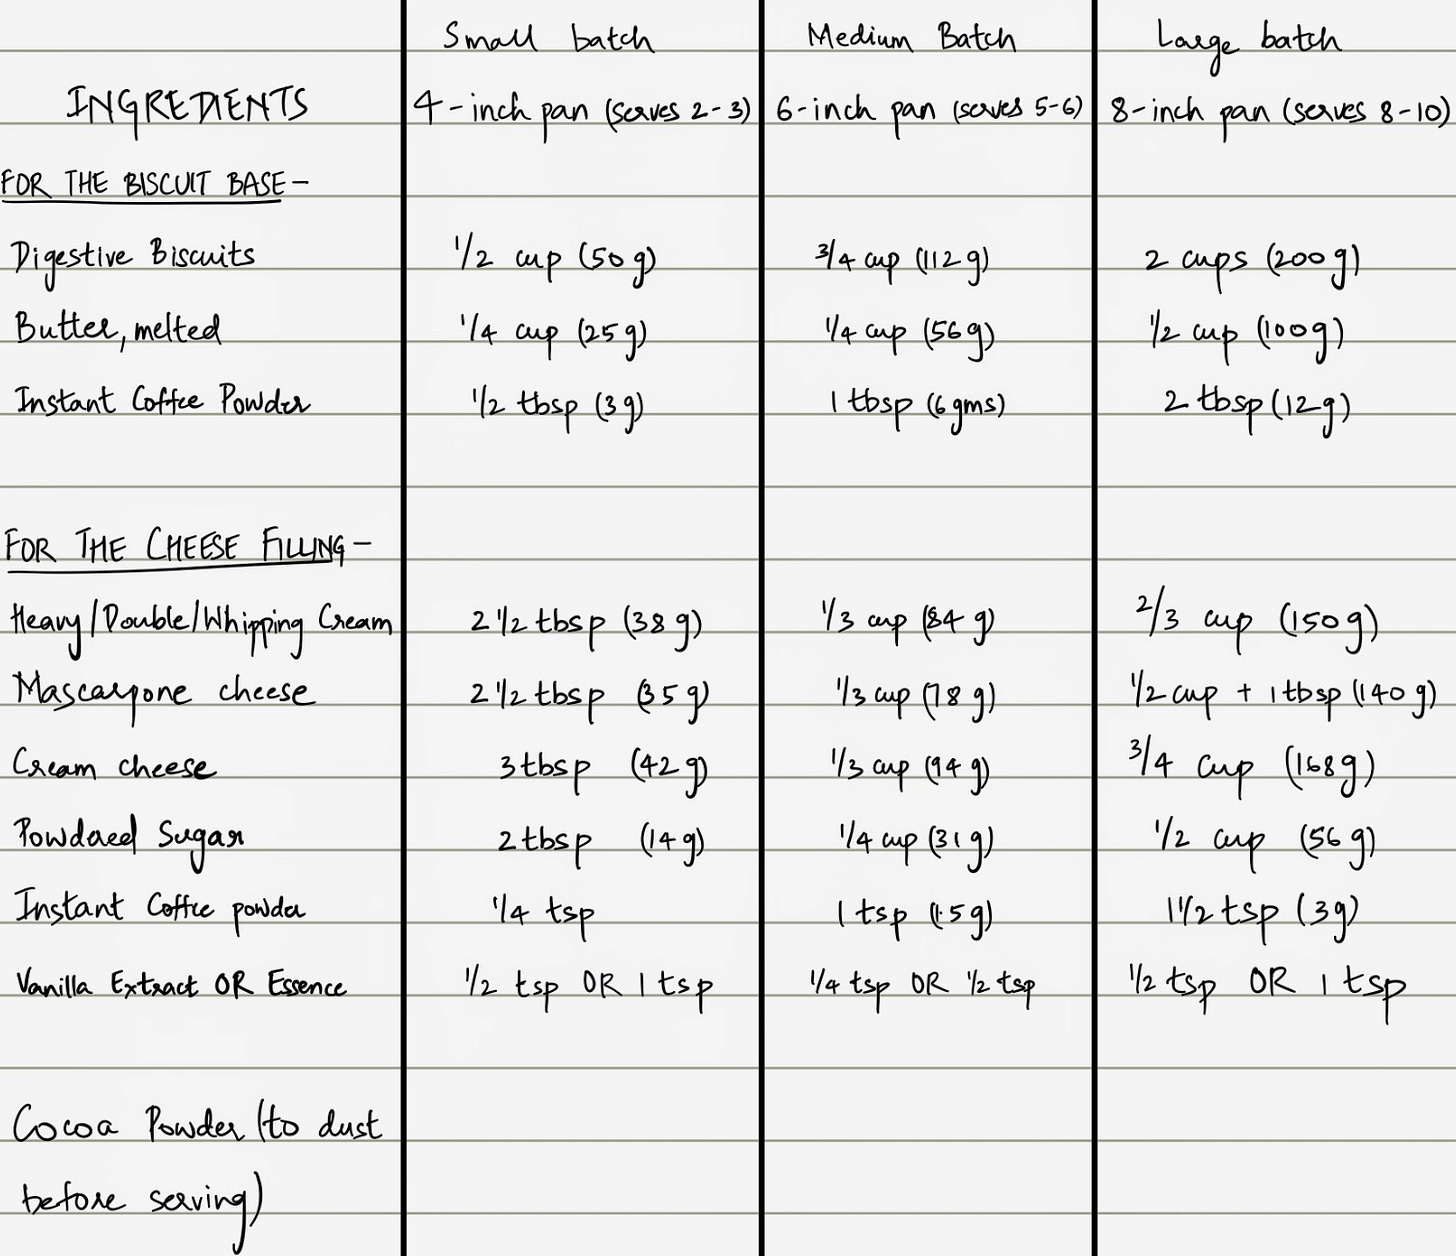 Small batch Medium Batch Large batch
INGREDIENTS 4-inch pan (serves 2-3) 6-inch pan (serves 5-6) 8-inch pan (serves 8-10)
FOR THE BISCUIT BASE-
Digestive Biscuits 1/2 cup (50g) 3/4 cup (112g) 2 cups (200g)
Butter, melted 1/4 cup (25g) 1/4 cup (56g) 1/2 cup (100g)
Instant Coffee Powder 1/2 tbsp (3g) 1 tbsp (6gms) 2 tbsp (12g)
FOR THE CHEESE FILLING-
Heavy/Double/Whipping Cream 2 1/2 tbsp (38g) 1/3 cup (84g) 2/3 cup (150g)
Mascarpone cheese 2 1/2 tbsp (35g) 1/3 cup (78g) 1/2 cup + 1tbsp (140g)
Cream cheese 3tbsp (42g) 1/3 cup (94g) 3/4 cup (168g)
Powdered Sugar 2tbsp (14g) 1/4 cup (31g) 1/2 cup (56g)
Instant Coffee powder 1/4 tsp 1 tsp (1.5g) 1 1/2 tsp (3g)
Vanilla Extract OR Essence 1/2 tsp OR 1 tsp 1/4 tsp OR 1/2 tsp 1/2 tsp OR 1 tsp
Cocoa Powder (to dust
before serving)